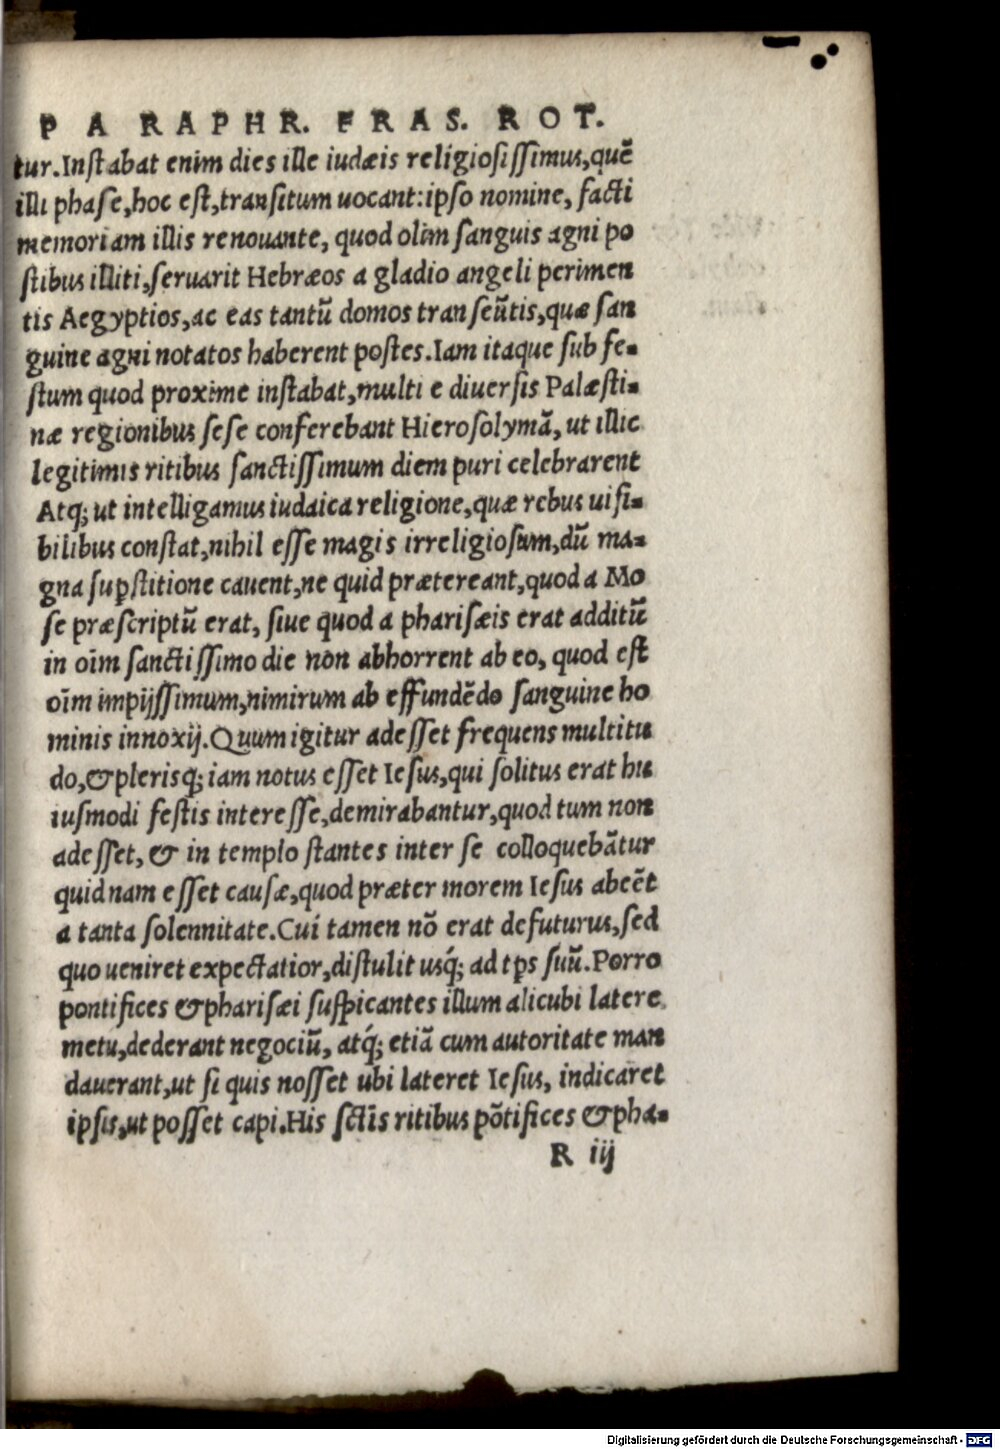 PARAPHR. ERAS. ROT.
tur. Instabat enim dies ille iudæis religiosissimus, quẽ
illi phase, hoc est, transitum uocant: ipso nomine, facti
memoriam illis renouante, quod olim sanguis agni po
stibus illiti, seruarit Hebræos a gladio angeli perimen
tis Aegyptios, ac eas tantũ domos transeũtis, quæ san
guine agni notatos haberent postes. Iam itaque sub fe-
stum quod proxime instabat, multi e diuersis Palæsti-
næ regionibus sese conferebant Hierosolymã, ut illic
legitimis ritibus sanctissimum diem puri celebrarent
Atq; ut intelligamus iudaica religione, quæ rebus uisi-
bilibus constat, nihil esse magis irreligiosum, dũ ma-
gna sup̱stitione cauent, ne quid prætereant, quod a Mo
se præscriptũ erat, siue quod a pharisæis erat additũ
in oīm sanctissimo die non abhorrent ab eo, quod est
oīm impijssimum, nimirum ab effundẽdo sanguine ho
minis innoxij. Quum igitur adesset frequens multitu
do, & plerisq; iam notus esset Iesus, qui solitus erat hu
iusmodi festis interesse, demirabantur, quod tum non
adesset, & in templo stantes inter se colloquebãtur
quidnam esset causæ, quod præter morem Iesus abeẽt
a tanta solennitate. Cui tamen nõ erat defuturus, sed
quo ueniret expectatior, distulit usq́; ad tp̱s suũ. Porro
pontifices & pharisæi suspicantes illum alicubi latere
metu, dederant negociũ, atq́; etiã cum autoritate man
dauerant, ut si quis nosset ubi lateret Iesus, indicaret
ipsis, ut posset capi. His sctīs ritibus põtifices & pha-
R iij
Digitalisierung gefördert durch die Deutsche Forschungsgemeinschaft - DFG